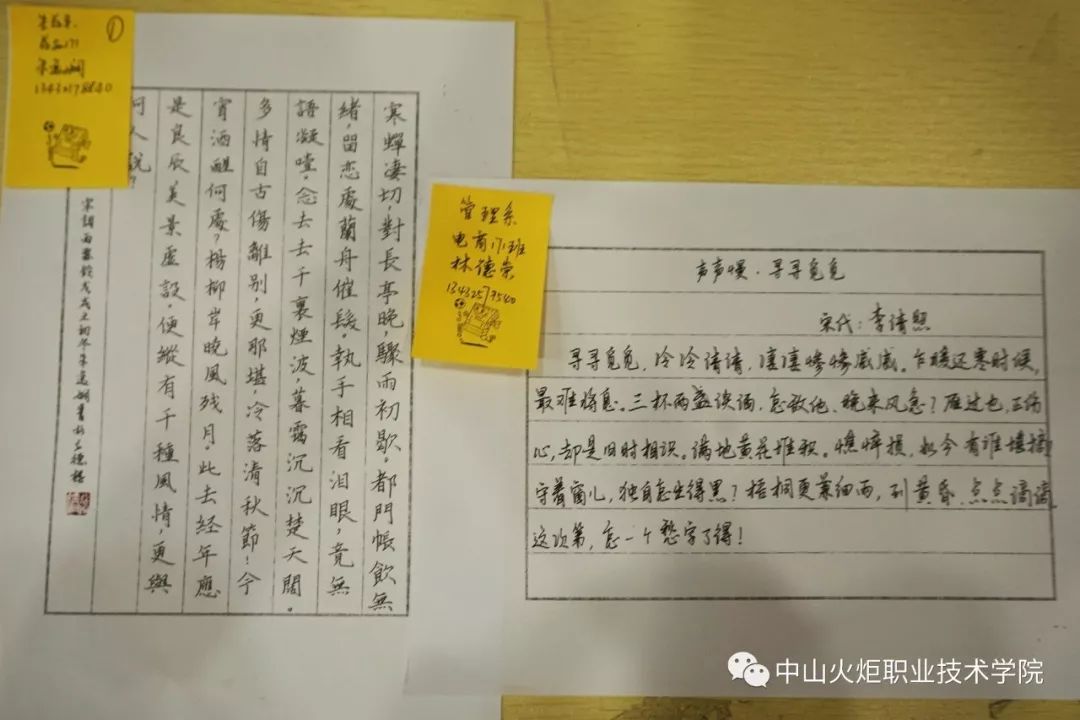 ①
药品171
寒蟬凄切，對長亭晚，驟雨初歇。都門帳飲無
緒，留恋處蘭舟催發。執手相看泪眼，竟無
語凝噎。念去去千裏煙波，暮靄沉沉楚天闊。
多情自古傷離别，更那堪，冷落清秋節！今
宵酒醒何處？楊柳岸曉風残月。此去经年應
是良辰美景虚設。便縱有千種風情，更與
何人説？
宋詞雨霖鈴戊戌之初冬
管理系
电商171班
林德荣
声声慢·寻寻觅觅
宋代：李清照
寻寻觅觅，冷冷清清，凄凄惨惨戚戚。乍暖还寒时候，
最难将息。三杯两盏淡酒，怎敌他、晚来风急？雁过也，正伤
心，却是旧时相识。满地黄花堆积。憔悴损，如今有谁堪摘
守着窗儿，独自怎生得黑？梧桐更兼细雨，到黄昏、点点滴滴。
这次第，怎一个愁字了得！
中山火炬职业技术学院